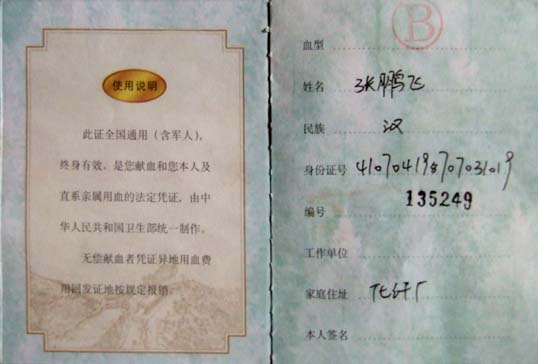 使用说明
此证全国通用（含军人），
终身有效，是您献血和您本人及
直系亲属用血的法定凭证，由中
华人民共和国卫生部统一制作。
无偿献血者凭证异地用血费
用回发证地按规定报销。
血型 B
姓名 张鹏飞
民族 汉
身份证号
编号 135249
工作单位
家庭住址 化纤厂
本人签名